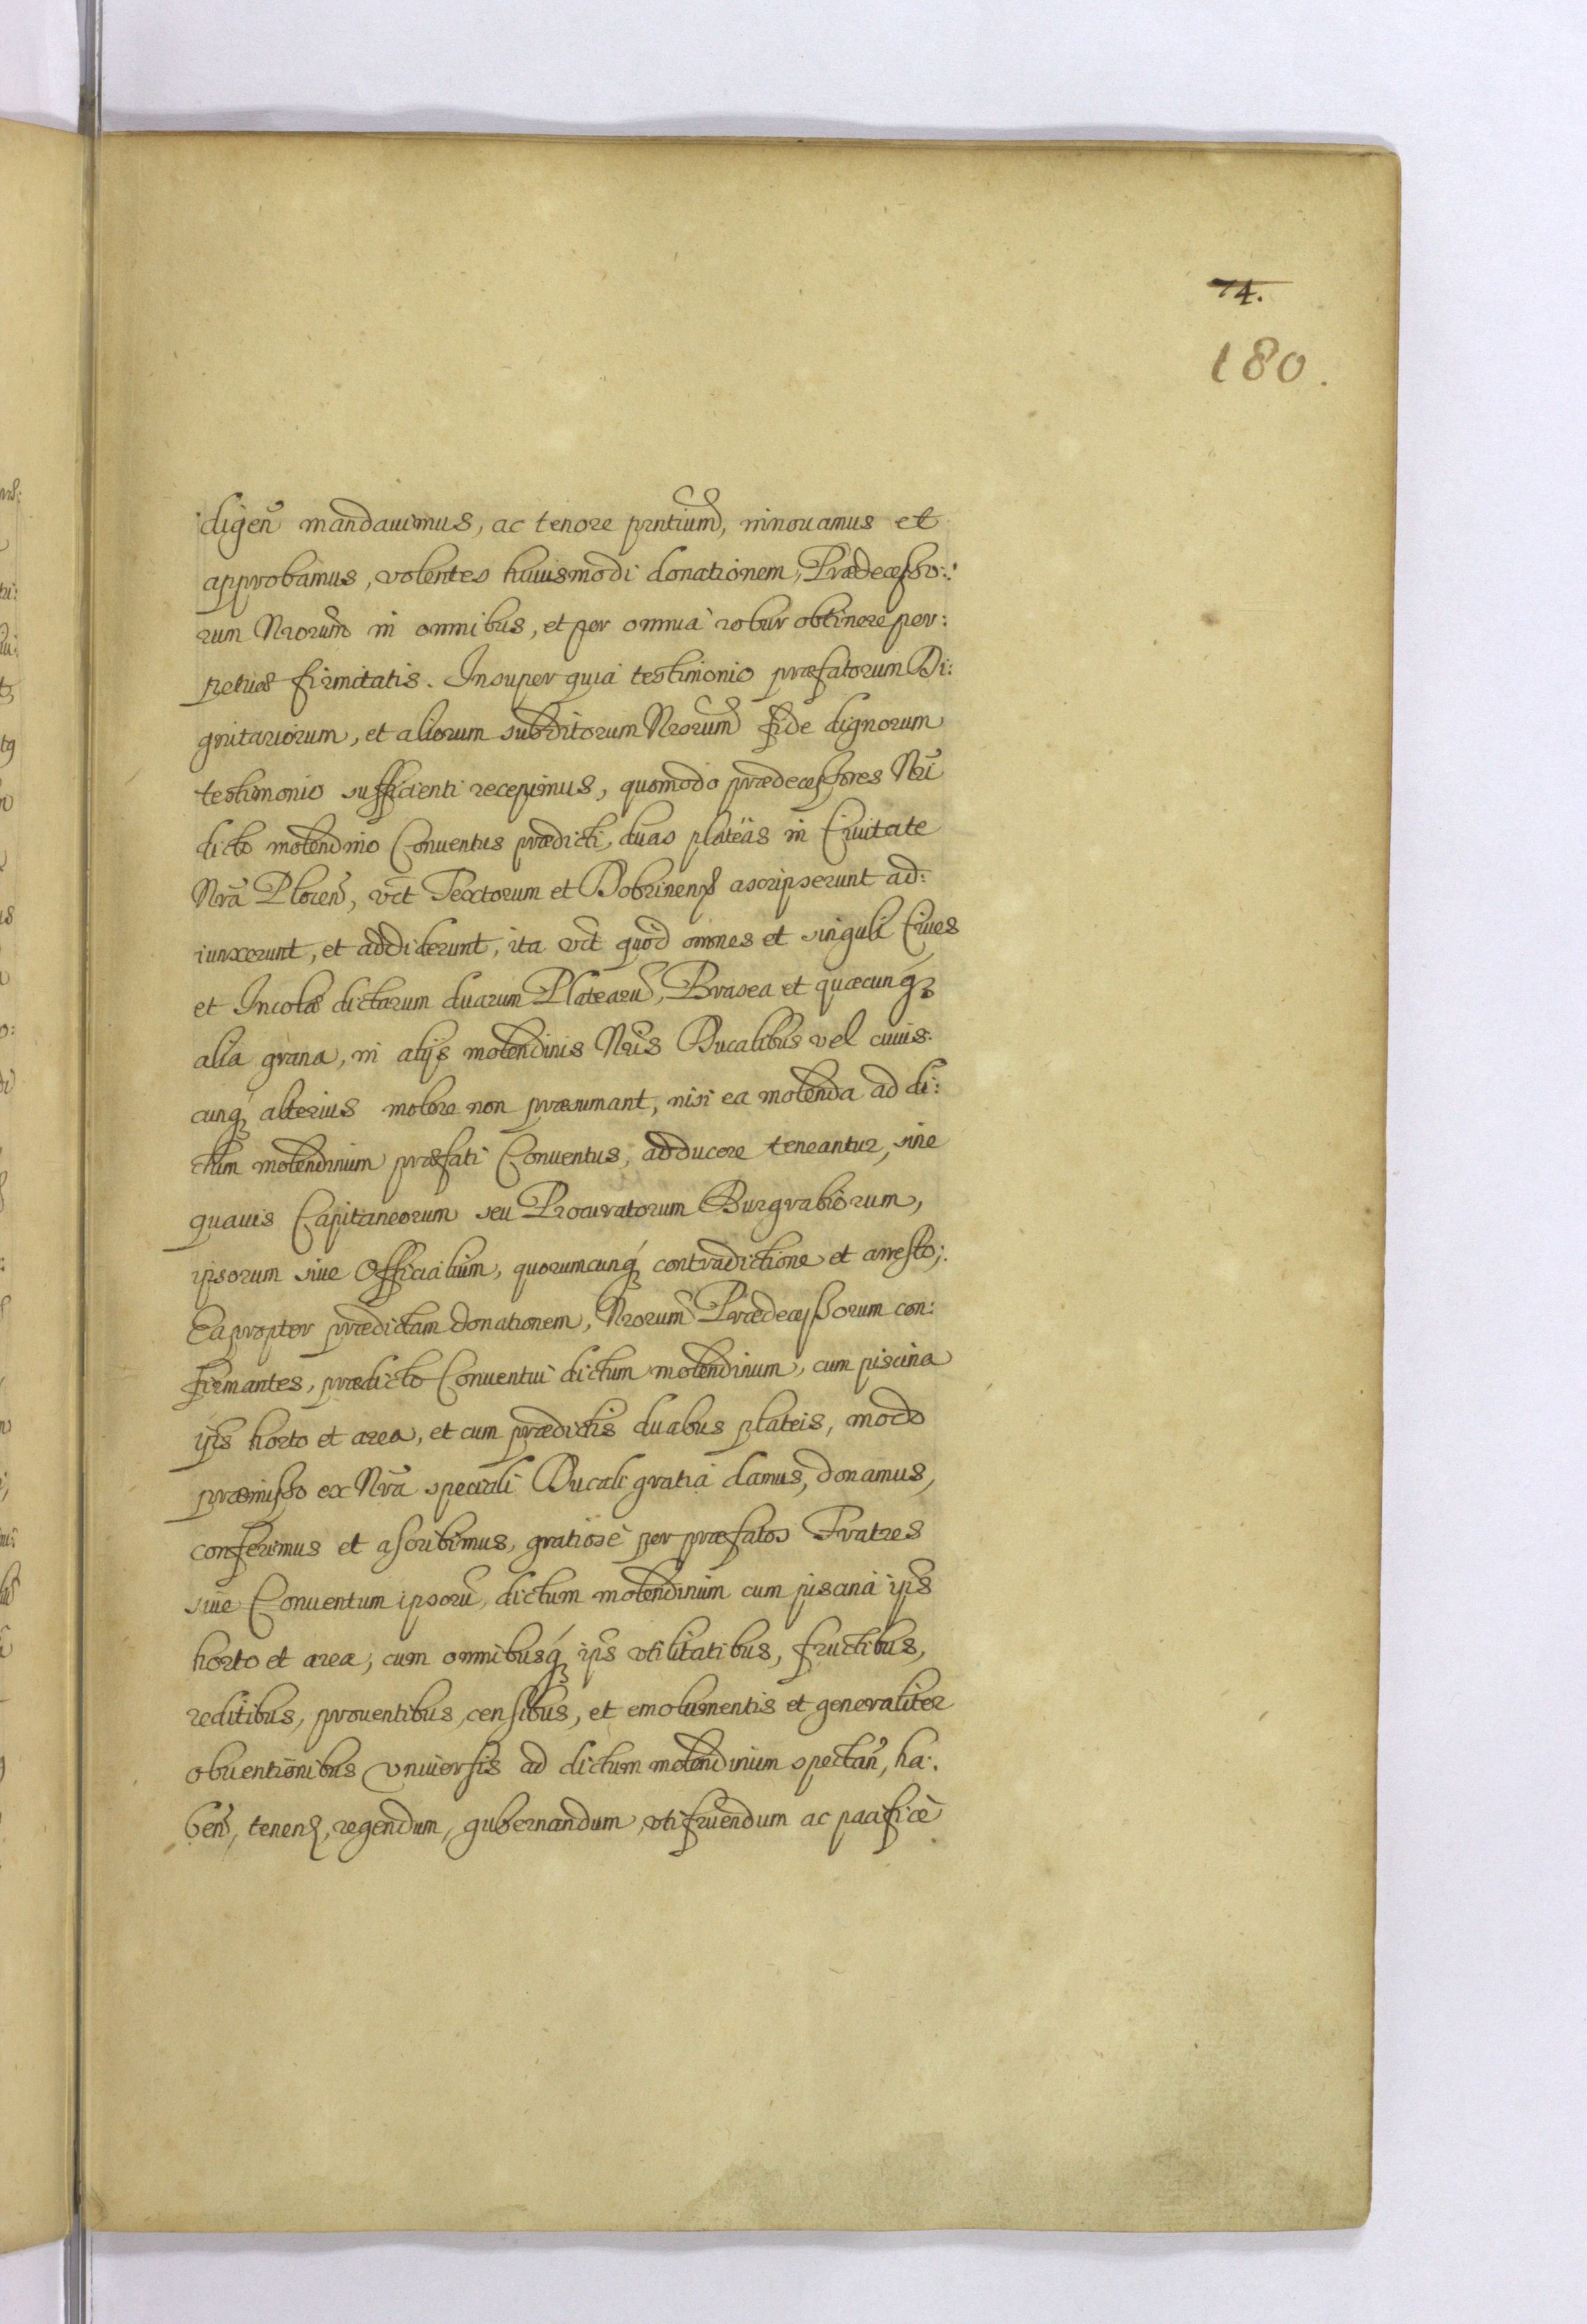 74.
180.
digen̄ mandauimus, ac tenore prntium, innouamus et
approbamus, volentes huiusmodi donationem, Prædecesso:
rum Nrorum in omnibus, et per omnia robur obtinere per:
petuæ firmitatis. Insuper quia testimonio præfatorum Di:
gnitariorum, et aliorum subditorum Nrorum fide dignorum
testimonio sufficienti recepimus, quomodo prædecessores Nri
dicto molendino Conuentus prædicti, duas plateas in Ciuitate
Nrã Plocen̄, vct Textorum et Dobrinens̄ ascripserunt ad:
iunxerunt, et addiderunt, ita vct quod omnes et singuli Ciues
et Incolæ dictarum duarum Platearũ, Brasea et quæcunq́ꝫ
alia grana, in alijs molendinis Nris Ducalibus vel cuius:
cunq́ꝫ alterius molere non præsumant, nisi ea molenda ad di:
ctum molendinum præfati Conuentus, adducere teneantur, sine
quauis Capitaneorum seu Procuratorum Burgrabiorum,
ipsorum siue Officialium, quorumcunq́ꝫ contradictione et arresto;
Ea propter prædictam donationem, Nrorum Prædecessorum con:
firmantes, prædicto Conuentui dictum molendinum, cum piscina
ips̄ horto et area, et cum prædictis duabus plateis, modo
præmisso ex Nrã speciali Ducali gratia damus, donamus,
conferimus et ascribimus, gratiosè per præfatos Fratres
siue Conuentum ipsorũ, dictum molendinum cum piscina ips̄
horto et area, cum omnibusq́ꝫ ips̄ vtilitatibus, fructibus,
reditibus, prouentibus, censibus, et emolumentis et generaliter
obuentionibus vniuersis ad dictum molendinum spectan̄, ha:
ben̄, tenen̄, regendum, gubernandum, vtifruendum ac pacificè